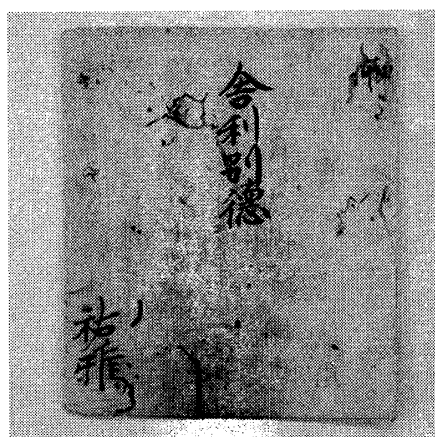 舎利別徳
祐雅